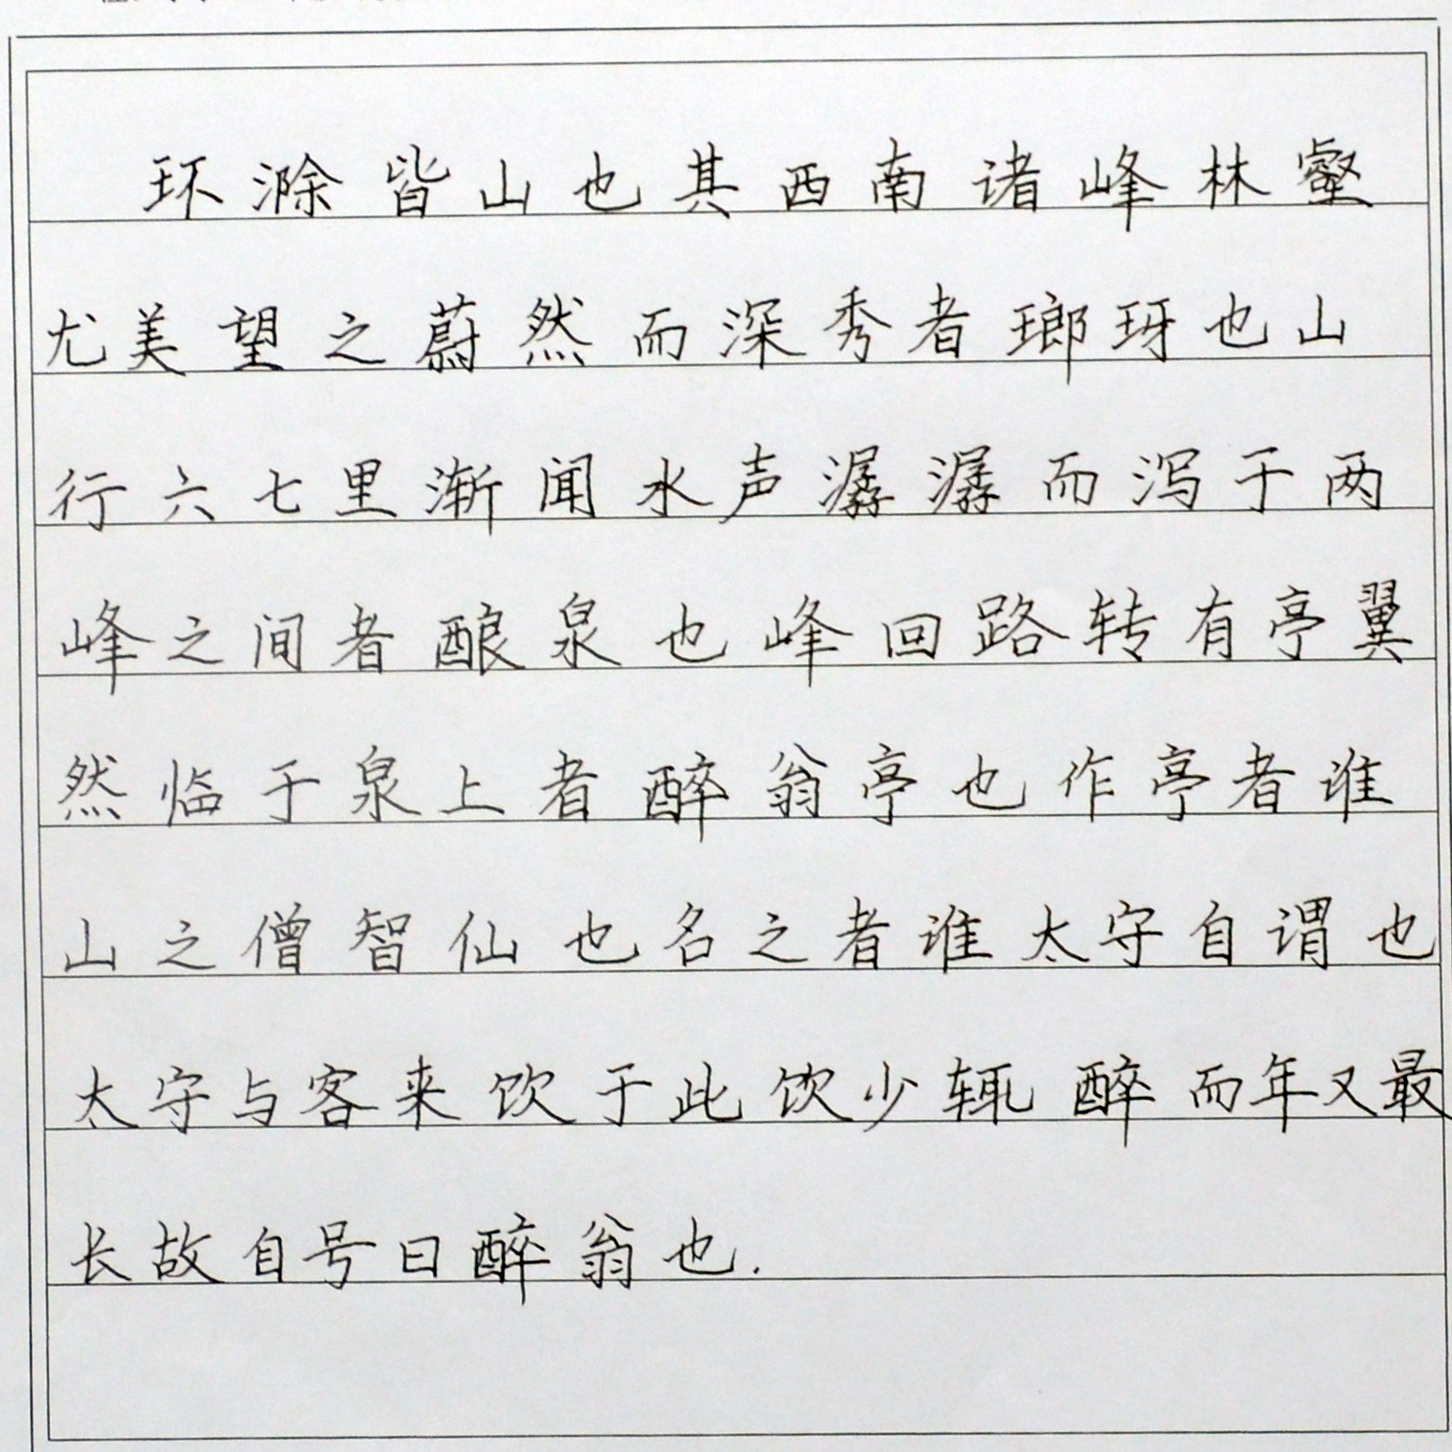 环滁皆山也其西南诸峰林壑
尤美望之蔚然而深秀者瑯玡也山
行六七里渐闻水声潺潺而泻于两
峰之间者酿泉也峰回路转有亭翼
然临于泉上者醉翁亭也作亭者谁
山之僧智仙也名之者谁太守自谓也
太守与客来饮于此饮少辄醉而年又最
长故自号曰醉翁也.